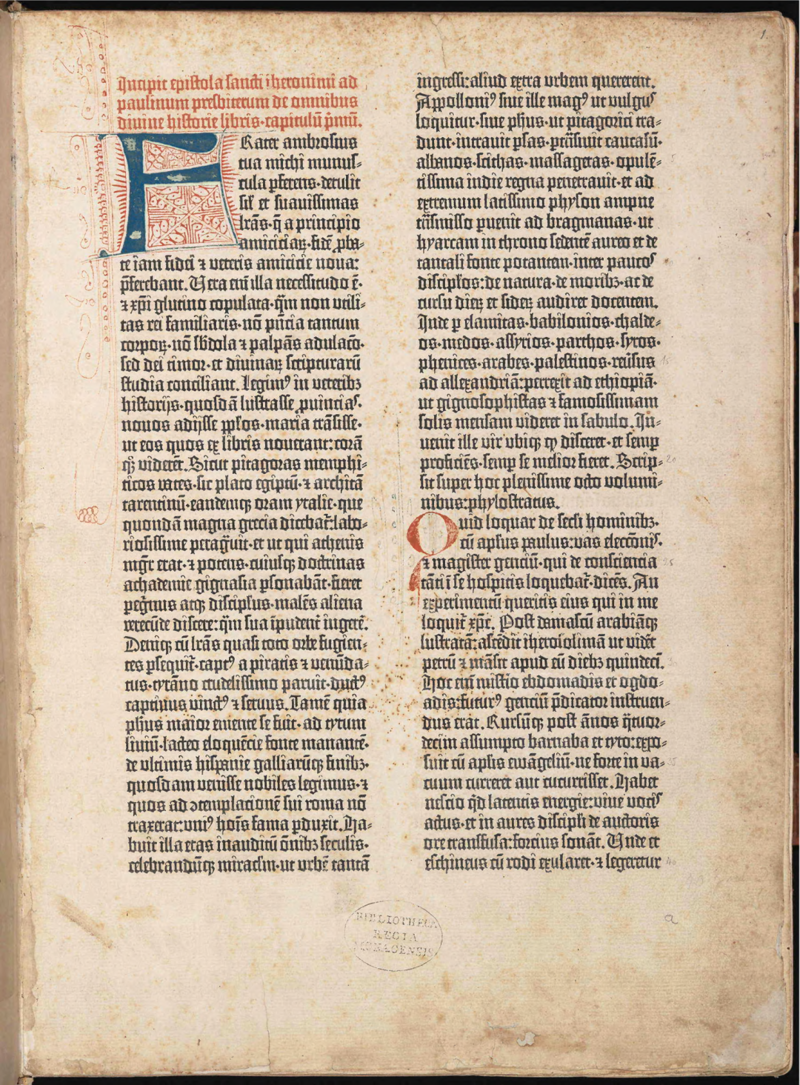 1.
Incipit epistola sancti iheronimi ad
paulinum presbiterum de omnibus
divine historie libris·capitulū p̄mū.
FRater ambrosius
tua michi munus-
cula ꝑferens·detulit
sił et suavissimas
lr̄as·q̄ a principio
amiciciaꝝ·fidē ꝓba-
te iam fidei ⁊ veteris amicicie nova:
p̄ferebant. Vera em̄ illa necessitudo ē·
⁊ xp̄i glutino copulata·qm̄ non utili-
tas rei familiaris·nō pn̄cia tantum
corpoꝝ·nō sb̄dola ⁊ palpās adulacō·
sed dei timor·et divinaꝝ scripturarū
studia conciliant. Legim⁹ in veteribꝫ
historijs·quosdā lustrasse ꝓuincias·
novos adijsse pp̄los·maria trāsisse·
ut eos quos ex libris noverant: corā
qꝫ viderēt. Sicut pitagoras memphi-
ticos vates·sic plato egiptū·⁊ architā
tarentinū·eandemqꝫ oram ytalie·que
quondā magna grecia dicebat̄: labo-
riosissime peragͥvit·et ut qui athenis
mgr̄ erat·⁊ potens·cuiusqꝫ doctrinas
achademie gignasia ꝑsonabāt·fieret
ꝑegrinus atqꝫ discipłus·malēs aliena
verecūde discere: qͫ sua īpudent̄ ingerē.
Deniqꝫ cū lr̄as quasi toto orbe fugien-
tes ꝑsequit̄·capt⁹ a piratis ⁊ venūda-
tus·tyrāno crudelissimo paruit·duct⁹
captivus vinct⁹ ⁊ servus. Tamē quia
pħus maior emente se fuit·ad tytum
liviū·lacteo eloquēcie fonte manantē·
de ultimis hispanie galliarūqꝫ finibꝫ·
quosdam venisse nobiles legimus·⁊
quos ad ꝯtemplacionē sui roma nō
traxerat: uni⁹ hoīs fama ꝑduxit. Ha-
buit illa etas inauditū ōnibꝫ seculis·
celebrandūqꝫ miraclm̄·ut urbē tantā
ingressi: aliud extra urbem quererent.
Appolloni⁹ sive ille mag⁹ ut vulgus
loquitur·sive pħus·ut pitagorici tra-
dunt·intravit ꝑsas·ꝑtrāsivit caucasū·
albanos·scithas·massagetas·opulē-
tissima indie regna penetravit·et ad
extremum latissimo physon ampne
trāsmisso ꝑvenit ad bragmanas·ut
hyarcam in throno sedentē aureo et de
tantali fonte potantem·inter paucos
discipłos: de natura·de moribꝫ·ac de
cursu dieꝝ et sideꝝ audiret docentem.
Inde ꝑ elamitas·babilonios·chalde-
os·medos·assyrios·parthos·syros·
phenices·arabes·palestinos·rēusus
ad allexandriā: perrexit ad ethiopiā·
ut gignosophistas ⁊ famosissimam
solis mensam videret in sabulo. In-
venit ille vir ubiqꝫ qͩ disceret·et semꝑ
proficiēs·semꝑ se melior fieret. Scrip-
sit super hoc plenissime octo volumi-
nibus: phylostratus.
Quid loquar de secli hominibꝫ·
cū apłus paulus: vas eleccōnis·
⁊ magister genciū·qui de consciencia
tāti ī se hospitis loquebat̄·dicēs. An
experimentū queritis eius qui in me
loquit̄ xp̄c. Post damascū arabiāqꝫ
lustratā: ascēdit iherosolimā ut vidēt
petrū ⁊ māsit apud eū diebꝫ quindeci.
Hoc em̄ misterio ebdomadis et ogdo-
adis: futurus genciū p̄dicator instruen-
dus erat. Rursūqꝫ post ānos q̄tuor-
decim assumpto barnaba et tyto: expo-
suit cū apłis ewāgeliū·ne forte in va-
cuum curreret aut cucurrisset. Habet
nescio qͩ latentis energie: vive vocis
actus·et in aures discipłi de auctoris
ore transfusa: forcius sonāt. Vnde et
eschineus cū rodi exularet·⁊ legeretur
BIBLIOTHECA
REGIA
MONACENSIS.
a